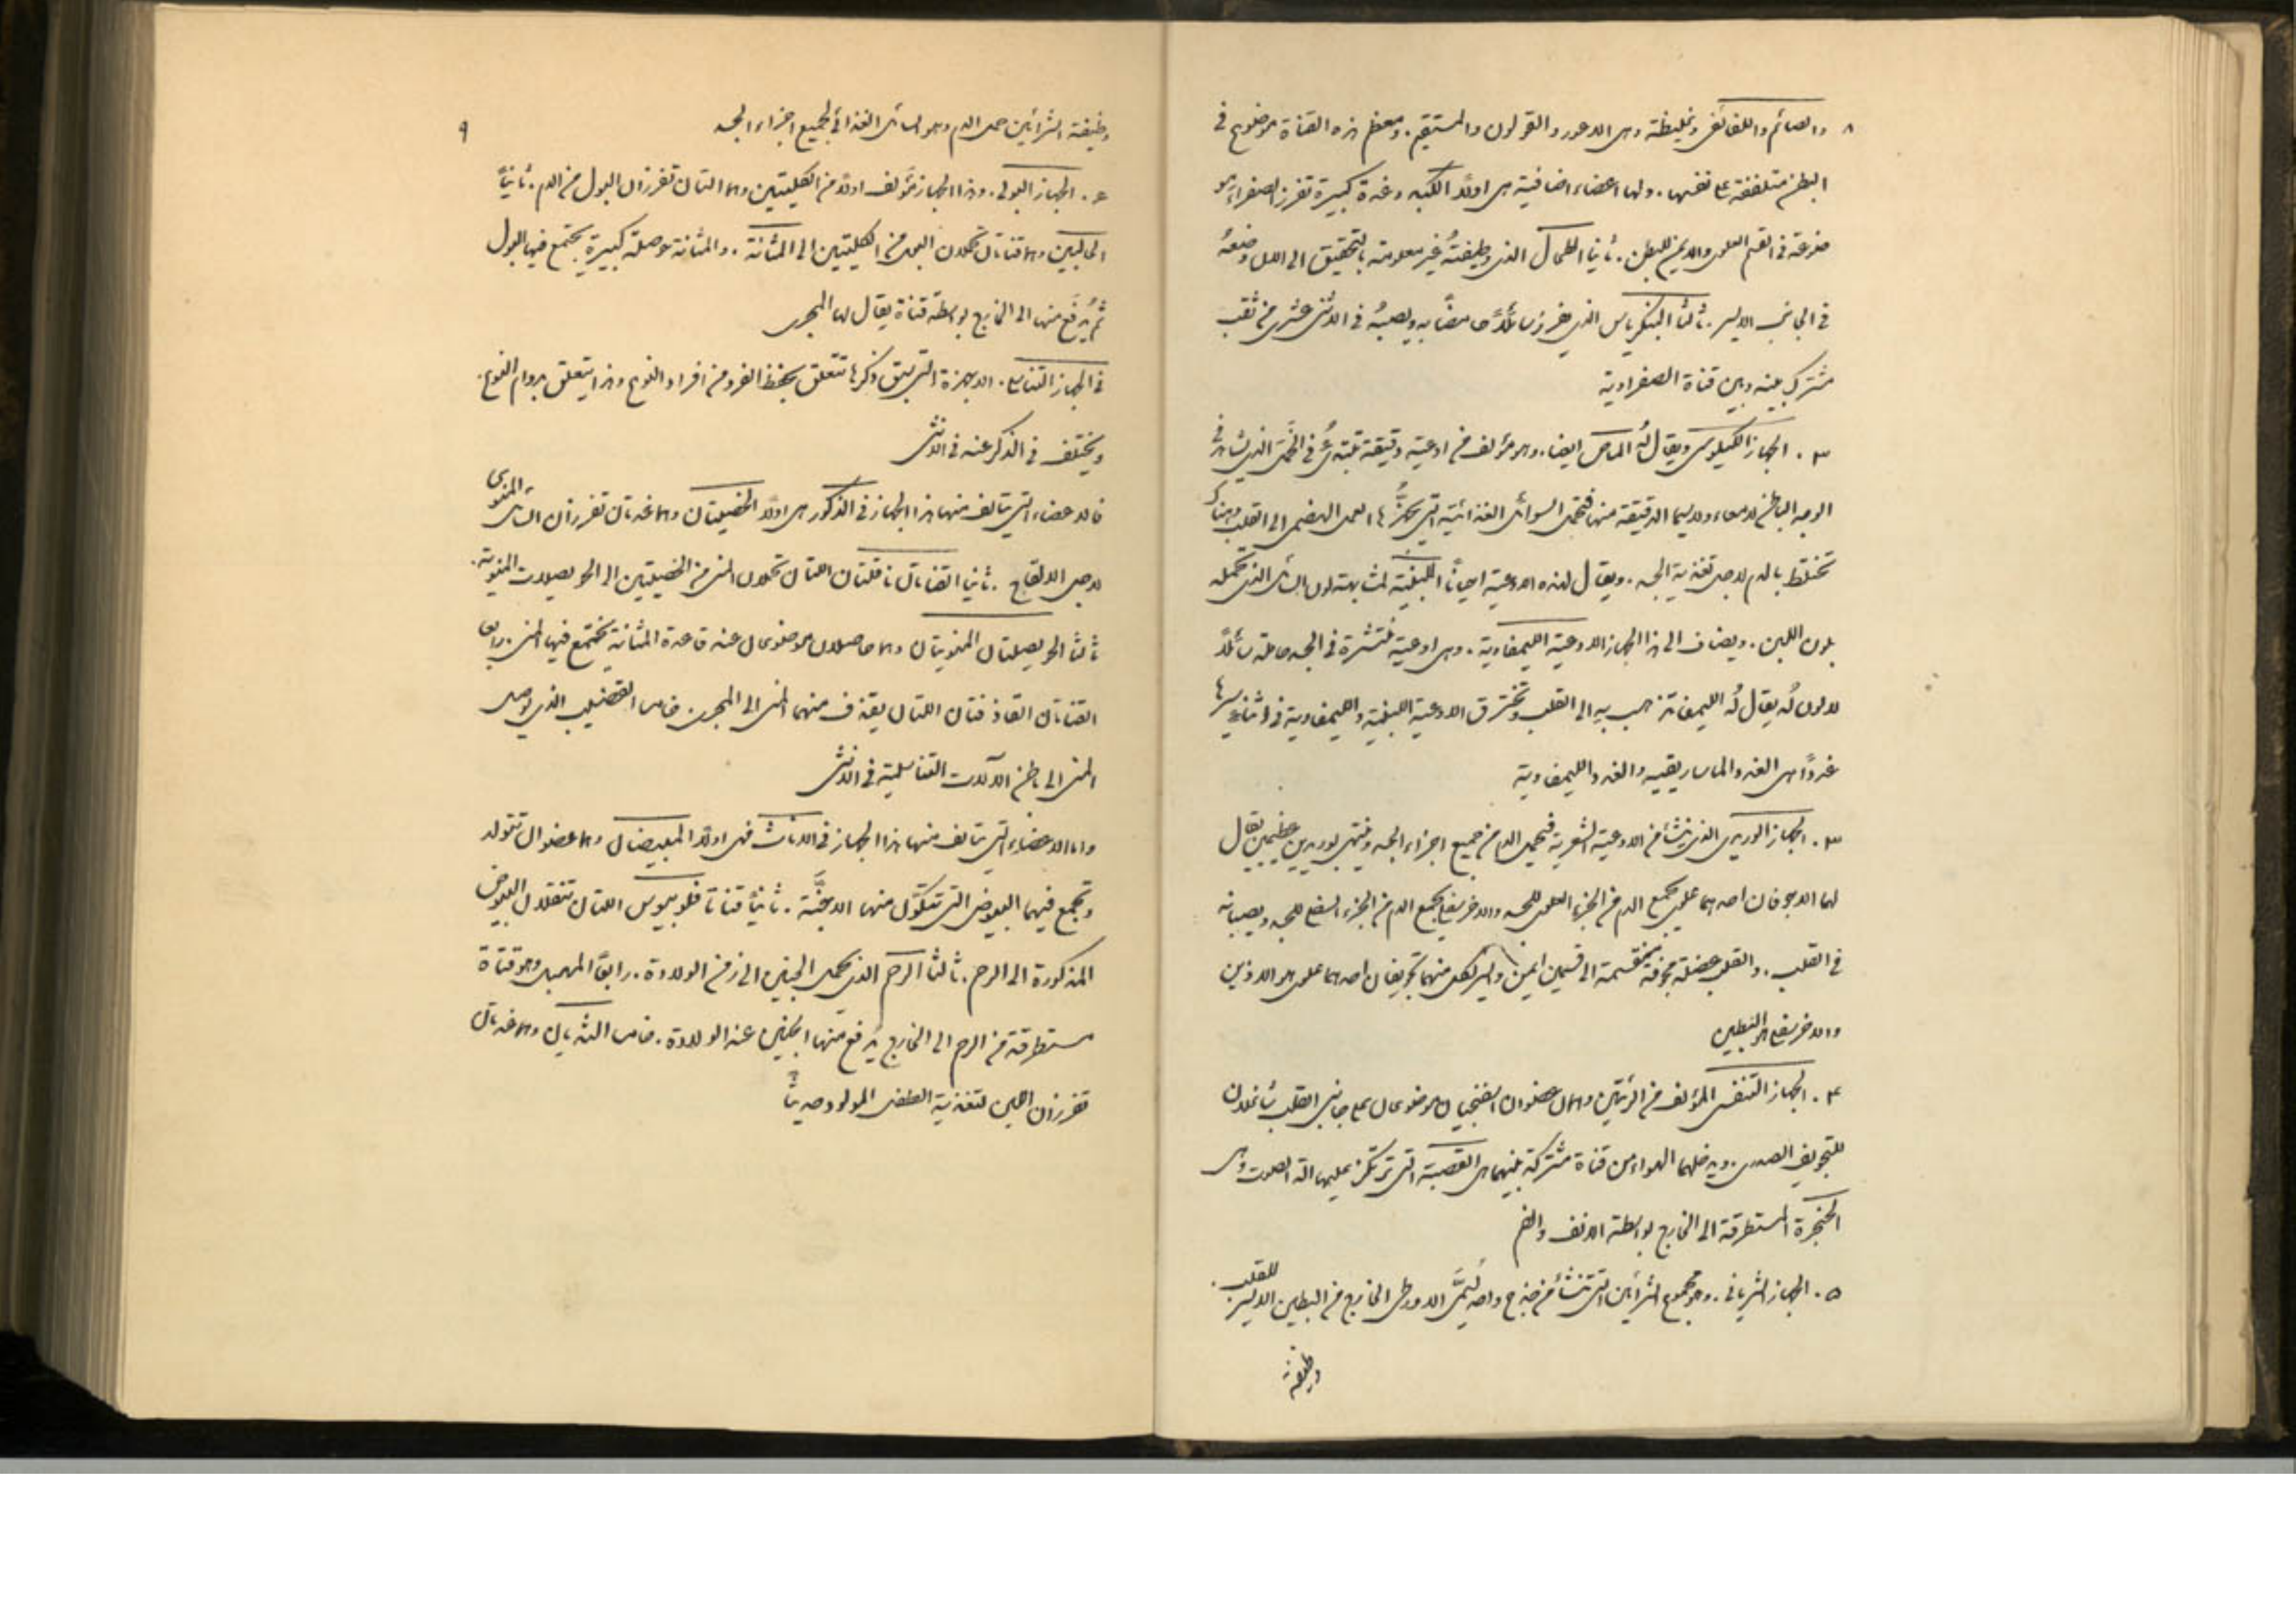 ٨ والصائم واللفائفى وغليظة وهى الاعور والقولون والمستقيم. ومعظم هذه القناة موضوع فى
البطن متلففة على نفسها. ولها اعضاء اضافية هى اولًا الكبد وغدة كبيرة تفرز الصفراء وهو
موضوعة فى القسم العلوى والايمن للبطن. ثانيا الطحال الذى وظيفتهُ غير معلومة بالتحقيق الى الان وضعهُ
فى الجانب الايسر. ثالثا البنكرياس الذى يفرز سائلًا خاصًا به ويصبهُ فى الاثنى عشرى من ثقب
مشترك بينه وبين قناة الصفراوية
٢. الجهاز الكيلوسى ويقال لهُ الماص ايضا. وهو مؤلف من اوعية دقيقة تبتدئُ فى الخمل الذى يشاهد فى
الوجه الباطن للامعاء ولاسيما الدقيقة منها فتحمل السوائل الغذائية التى يحضرها العمل الهضمى الى القلب وهناك
تختلط بالدم لاجل تغذية الجسد. ويقال لهذه الاوعية احيانًا اللبنية لمشابهة لون السائل الذى تحمله
بلون اللبن. ويضاف الى هذا الجهاز الاوعية الليمفاوية. وهى اوعية منتشرة فى الجسد حاملة سائلًا
لا لون لهُ يقال لهُ الليمفا تذهب به الى القلب وتخترق الاوعية اللبنية والليمفاوية فى اثناء سيرها
غددًا هى الغدد الماساريقية والغدد الليمفاوية
٣. الجهاز الوريدى الذى ينشأ من الاوعية الشعرية فيحمل الدم من جميع اجزاء الجسد وينتهى بوريدين عظيمين يقال
لهما الاجوفان احدهما علوى يجمع الدم من الجزء العلوى للجسد والاخر سفلى يجمع الدم من الجزء السفلى للجسد ويصبانه
فى القلب. والقلب عضلة مجوفة منقسمة الى قسمين ايمن وايسر لكل منهما تجويفان احدهما علوى هو الاذين
والاخر سفلى هو البطين
٤. الجهاز التنفسى المؤلف من الرئتين وهما عضوان اسفنجيان موضوعان على جانبى القلب شاغلان
للتجويف الصدرى. ويدخلهما الهواء من قناة مشتركة بينهما هى القصبة التى ترتكز عليها الة الصوت وهى
الحنجرة المستطرقة الى الخارج بواسطة الانف والفم
٥. الجهاز الشريانى. وهو مجموع الشرائين التى تنشأ من جذع واحد يُسمَّى الاورطى الخارج من البطين الايسر للقلب.
وظيفة
٩
وظيفة الشرائين حمل الدم وهو السائل الغذائى لجميع اجزاء الجسد
٦. الجهاز البولى. وهذا الجهاز مؤلف اولًا من الكليتين وهما اللتان تفرزان البول من الدم. ثانيًا
الحالبين وهما قناتان تحملان البول من الكليتين الى المثانة. والمثانة حوصلة كبيرة يجتمع فيها البول
ثم يُدفَع منها الى الخارج بواسطة قناة يقال لها المجرى
فى الجهاز التناسلى. الاجهزة التى سبق ذكرها تتعلق بحفظ الفرد من افراد النوع وهذا يتعلق بدوام النوع.
ويختلف فى الذكر عنه فى الانثى
فالاعضاء التى يتالف منها هذا الجهاز فى الذكور هى اولًا الخصيتان وهما غدتان تفرزان السائل المنوى
لاجل الالقاح. ثانيا القناتان الناقلتان اللتان تحملان المنى من الخصيتين الى الحويصلات المنوية.
ثالثا الحويصلتان المنويتان وهما حاصلان موضوعان عند قاعدة المثانة يجتمع فيها المنى. رابعا
القناتان القاذفتان اللتان يقذف منهما المنى الى المجرى. خامسا القضيب الذى يوصل
المنى الى باطن الآلات التناسلية فى الانثى
واما الاعضاء التى يتالف منها هذا الجهاز فى الاناث فهى اولًا المبيضان وهما عضوان تتولد
وتجمع فيهما البيوض التى تتكوَّن منها الاجنَّة. ثانيًا قناتا فلوبيوس اللتان تنقلان البيوض
المذكورة الى الرحم. ثالثا الرحم الذى يحمل الجنين الى زمن الولادة. رابعًا المهبل وهو قناة
مستطرقة من الرحم الى الخارج يُدفع منها الجنين عند الولادة. خامسا الثديان وهما غدتان
تفرزان اللبن لتغذية الطفل المولود حديثًا